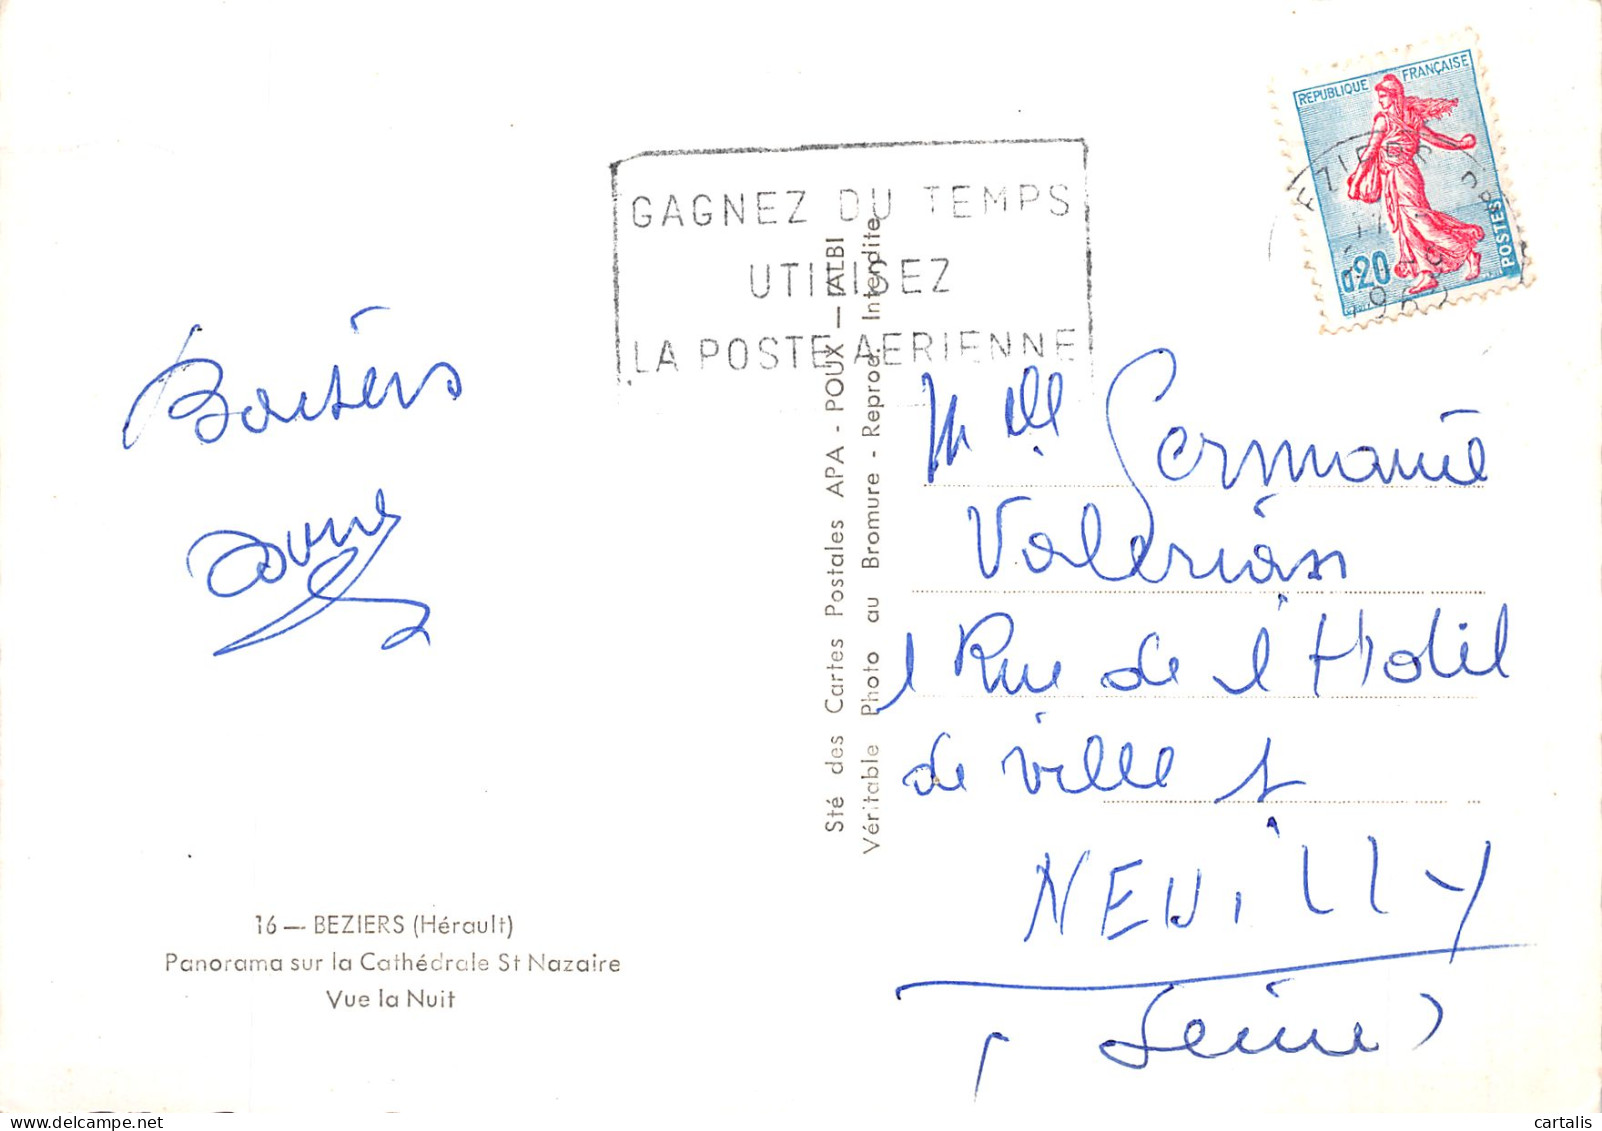 REPUBLIQUE FRANÇAISE
0,20
POSTES
GAGNEZ DU TEMPS
UTILISEZ
LA POSTE AERIENNE
Baisers
16 — BEZIERS (Hérault)
Panorama sur la Cathédrale St Nazaire
Vue la Nuit
Sté des Cartes Postales APA - POUX — ALBI
Véritable Photo au Bromure - Reprod. Interdite
Mlle Germaine
Valerian
1 Rue de l Hotel
de ville
NEUILLY
(Seine)
cartalis